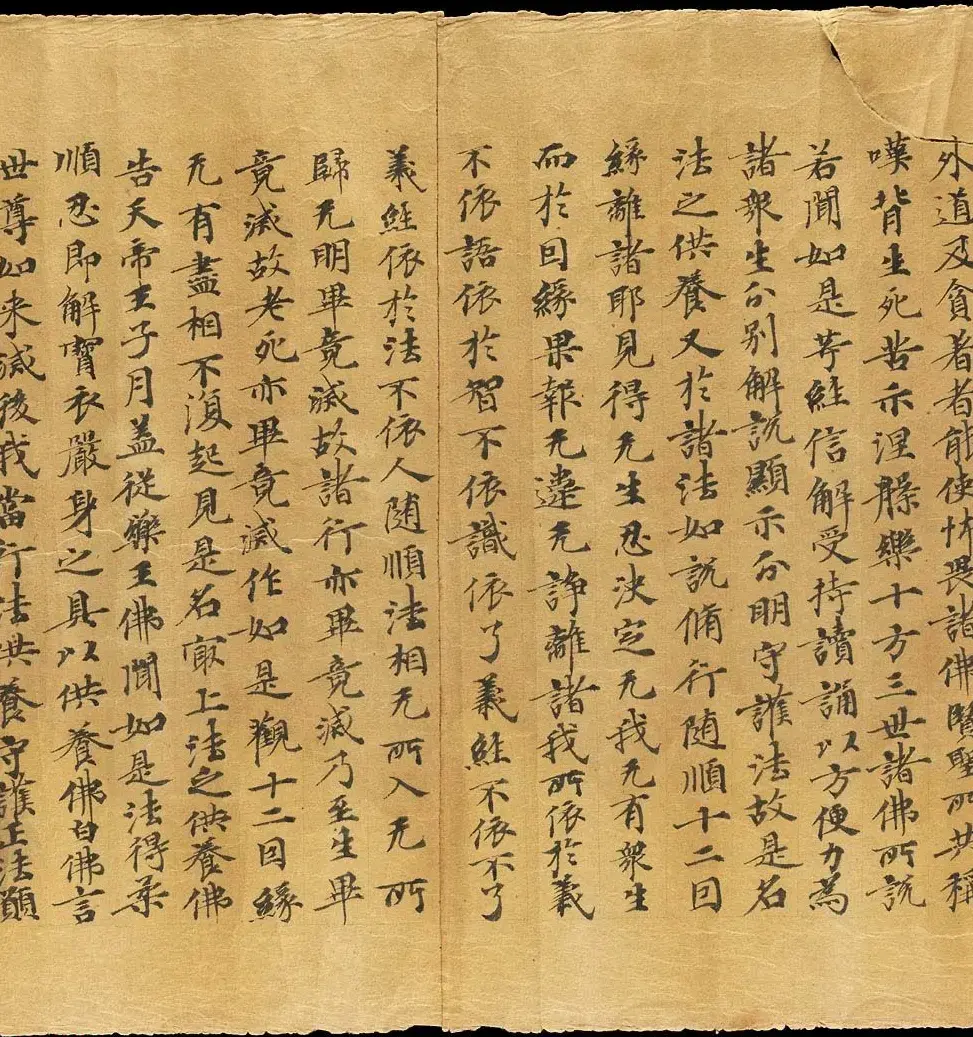 外道及貪著者能使怖畏諸佛賢聖所共稱
嘆背生死苦示涅槃樂十方三世諸佛所說
若聞如是等經信解受持讀誦以方便力為
諸眾生分別解說顯示分明守護法故是名
法之供養又於諸法如說脩行随順十二因
緣離諸耶見得无生忍決定无我无有眾生
而於因緣果報无違无諍離諸我所依於義
不依語依於智不依識依了義經不依不了
義經依於法不依人随順法相无所入无所
歸无明畢竟滅故諸行亦畢竟滅乃至生畢
竟滅故老死亦畢竟滅作如是觀十二因緣
无有盡相不復起見是名㝡上法之供養佛
告天帝王子月盖從藥王佛聞如是法得柔
順忍即解寶衣嚴身之具以供養佛白佛言
世尊如来滅後我當行法供養守護正法願